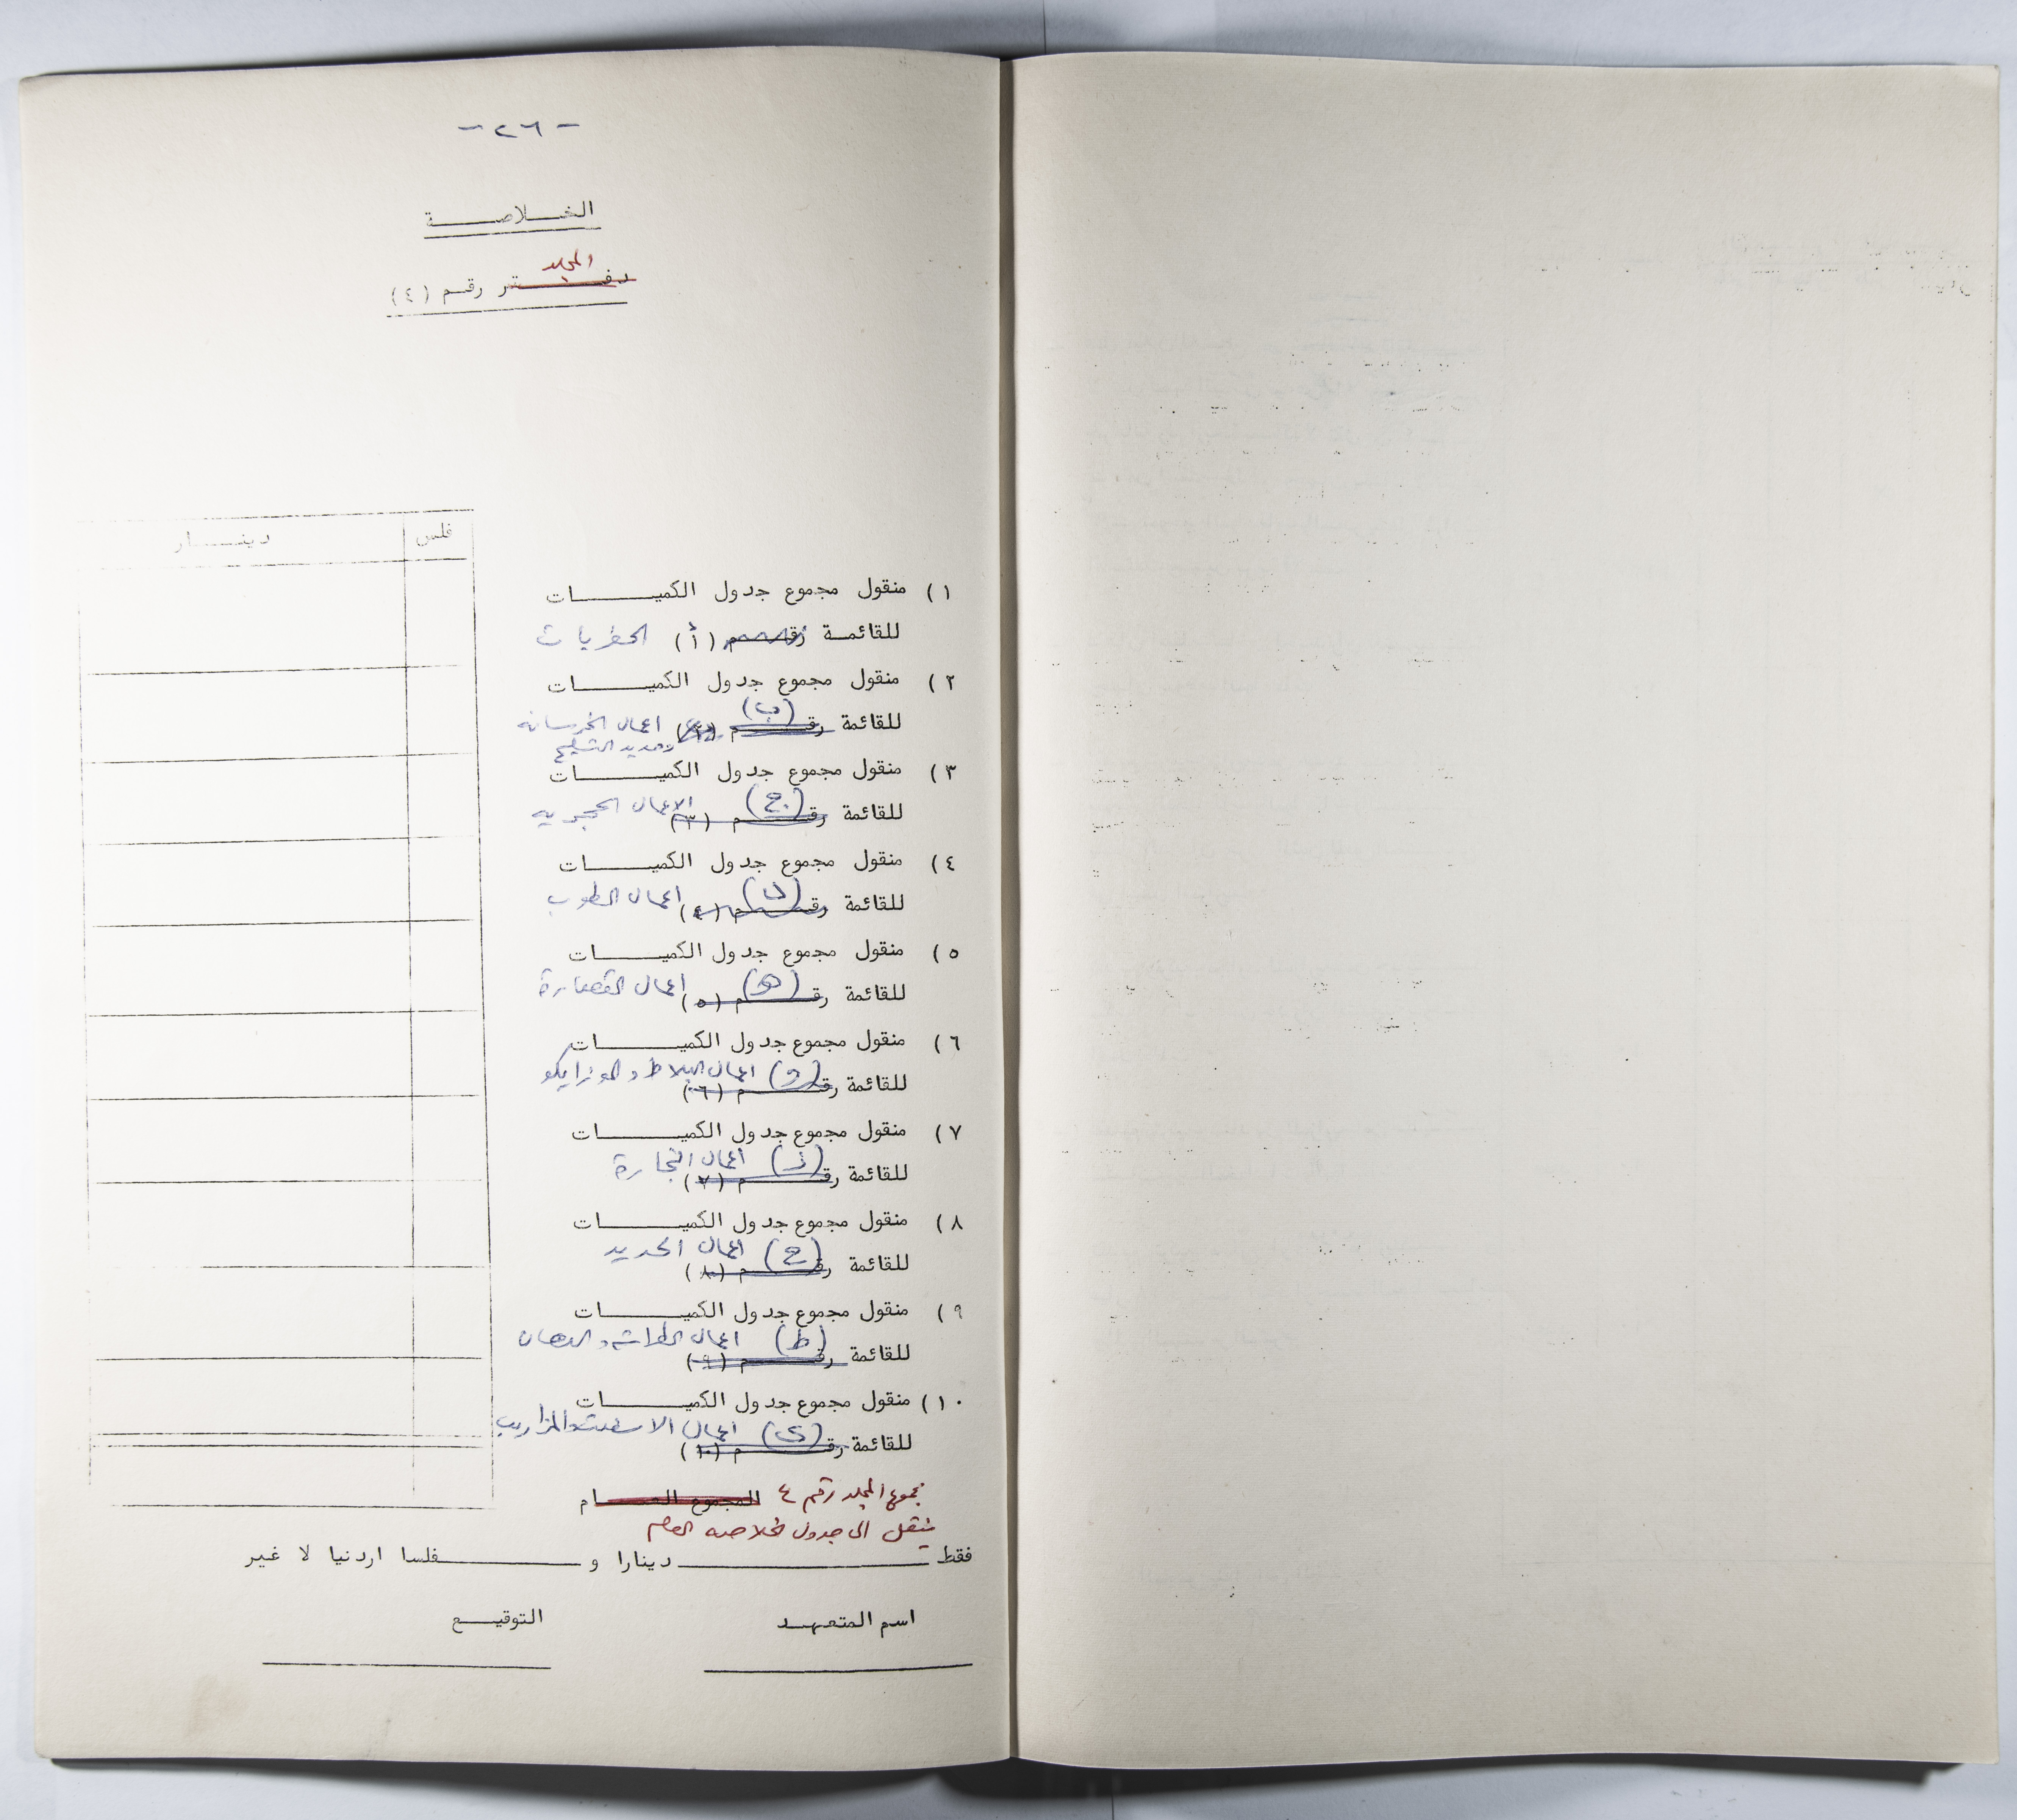 - ٢٦ -
الخلاصة
المجلد
دفتر رقم (٤)
فلس دينار
١) منقول مجموع جدول الكميات
للقائمة رقم (أ) الحفريات
٢) منقول مجموع جدول الكميات
للقائمة رقم (ب) (٢) اعمال الخرسانه
وحديد التسليح
٣) منقول مجموع جدول الكميات
للقائمة رقم (ج) (٣) الاعمال الحجريه
٤) منقول مجموع جدول الكميات
للقائمة رقم (د) (٤) اعمال الطوب
٥) منقول مجموع جدول الكميات
للقائمة رقم (هـ) (٥) اعمال القصارة
٦) منقول مجموع جدول الكميات
للقائمة رقم (و) (٦) اعمال البلاط والموزايكو
٧) منقول مجموع جدول الكميات
للقائمة رقم (ز) (٧) اعمال النجارة
٨) منقول مجموع جدول الكميات
للقائمة رقم (ح) (٨) اعمال الحديد
٩) منقول مجموع جدول الكميات
للقائمة رقم (ط) (٩) اعمال الطراشه والدهان
١٠) منقول مجموع جدول الكميات
للقائمة رقم (ي) (١٠) اعمال الاسفلت والمزاريب
المجموع العام مجموع المجلد رقم ٤
ينقل الى جدول خلاصه العام
فقط دينارا و فلسا اردنيا لا غير
اسم المتعهد التوقيع